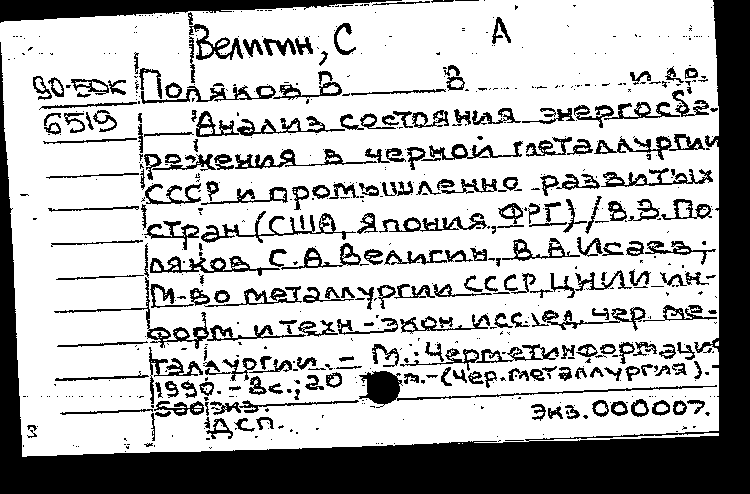 Велигин, С А
90-50К Поляков, В В и др.
6519 Анализ состояния энергосбе-
режения в черной металлургии
СССР и промышленно развитых
стран (США, Япония, ФРГ) / В.В. По-
ляков, С.А. Велигин, В.А. Исаев;
М-во металлургии СССР, ЦНИИ ин-
форм. и техн.-экон. исслед. чер. ме-
таллургии. - М.: Черметинформация
1990. - 8с.; 20 см. - (Чер. металлургия). -
500 экз.
Экз. 000007.
ДСП.
3